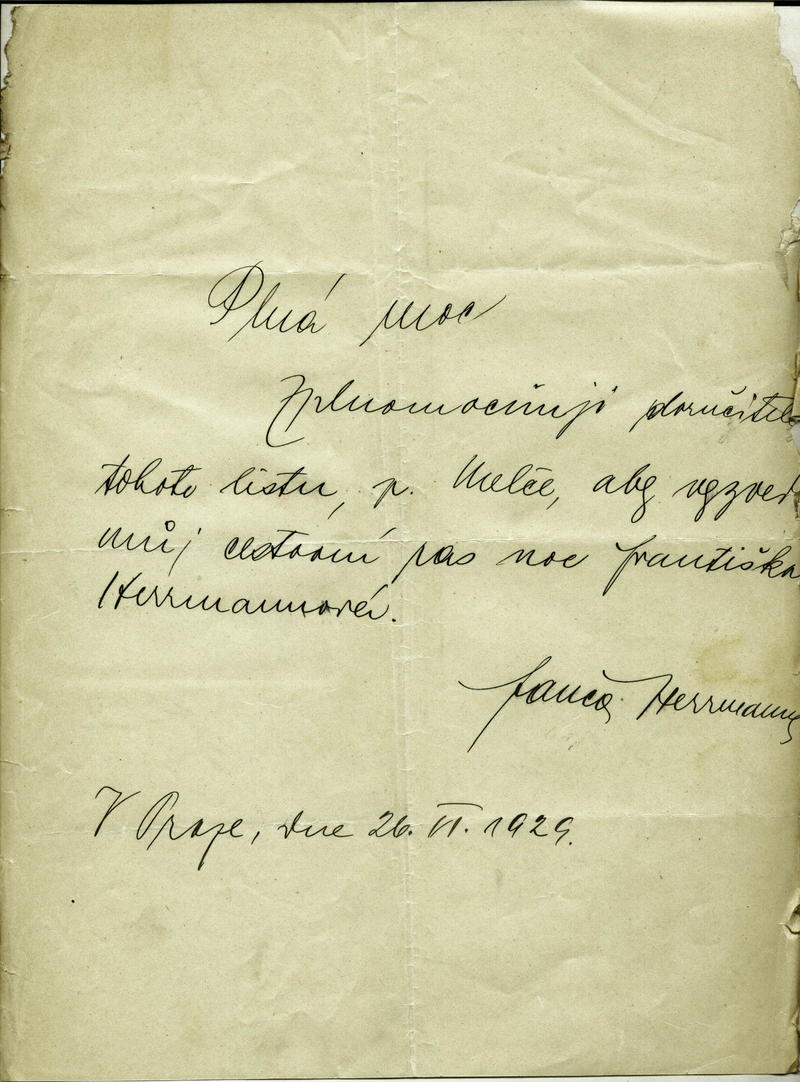 Plná moc
Zplnomocňuji doručitele
tohoto listu, p. Melče, aby vyzved
můj cestovní pas
Herrmannová.
Herrmann
V Praze, dne 26. VI. 1929.